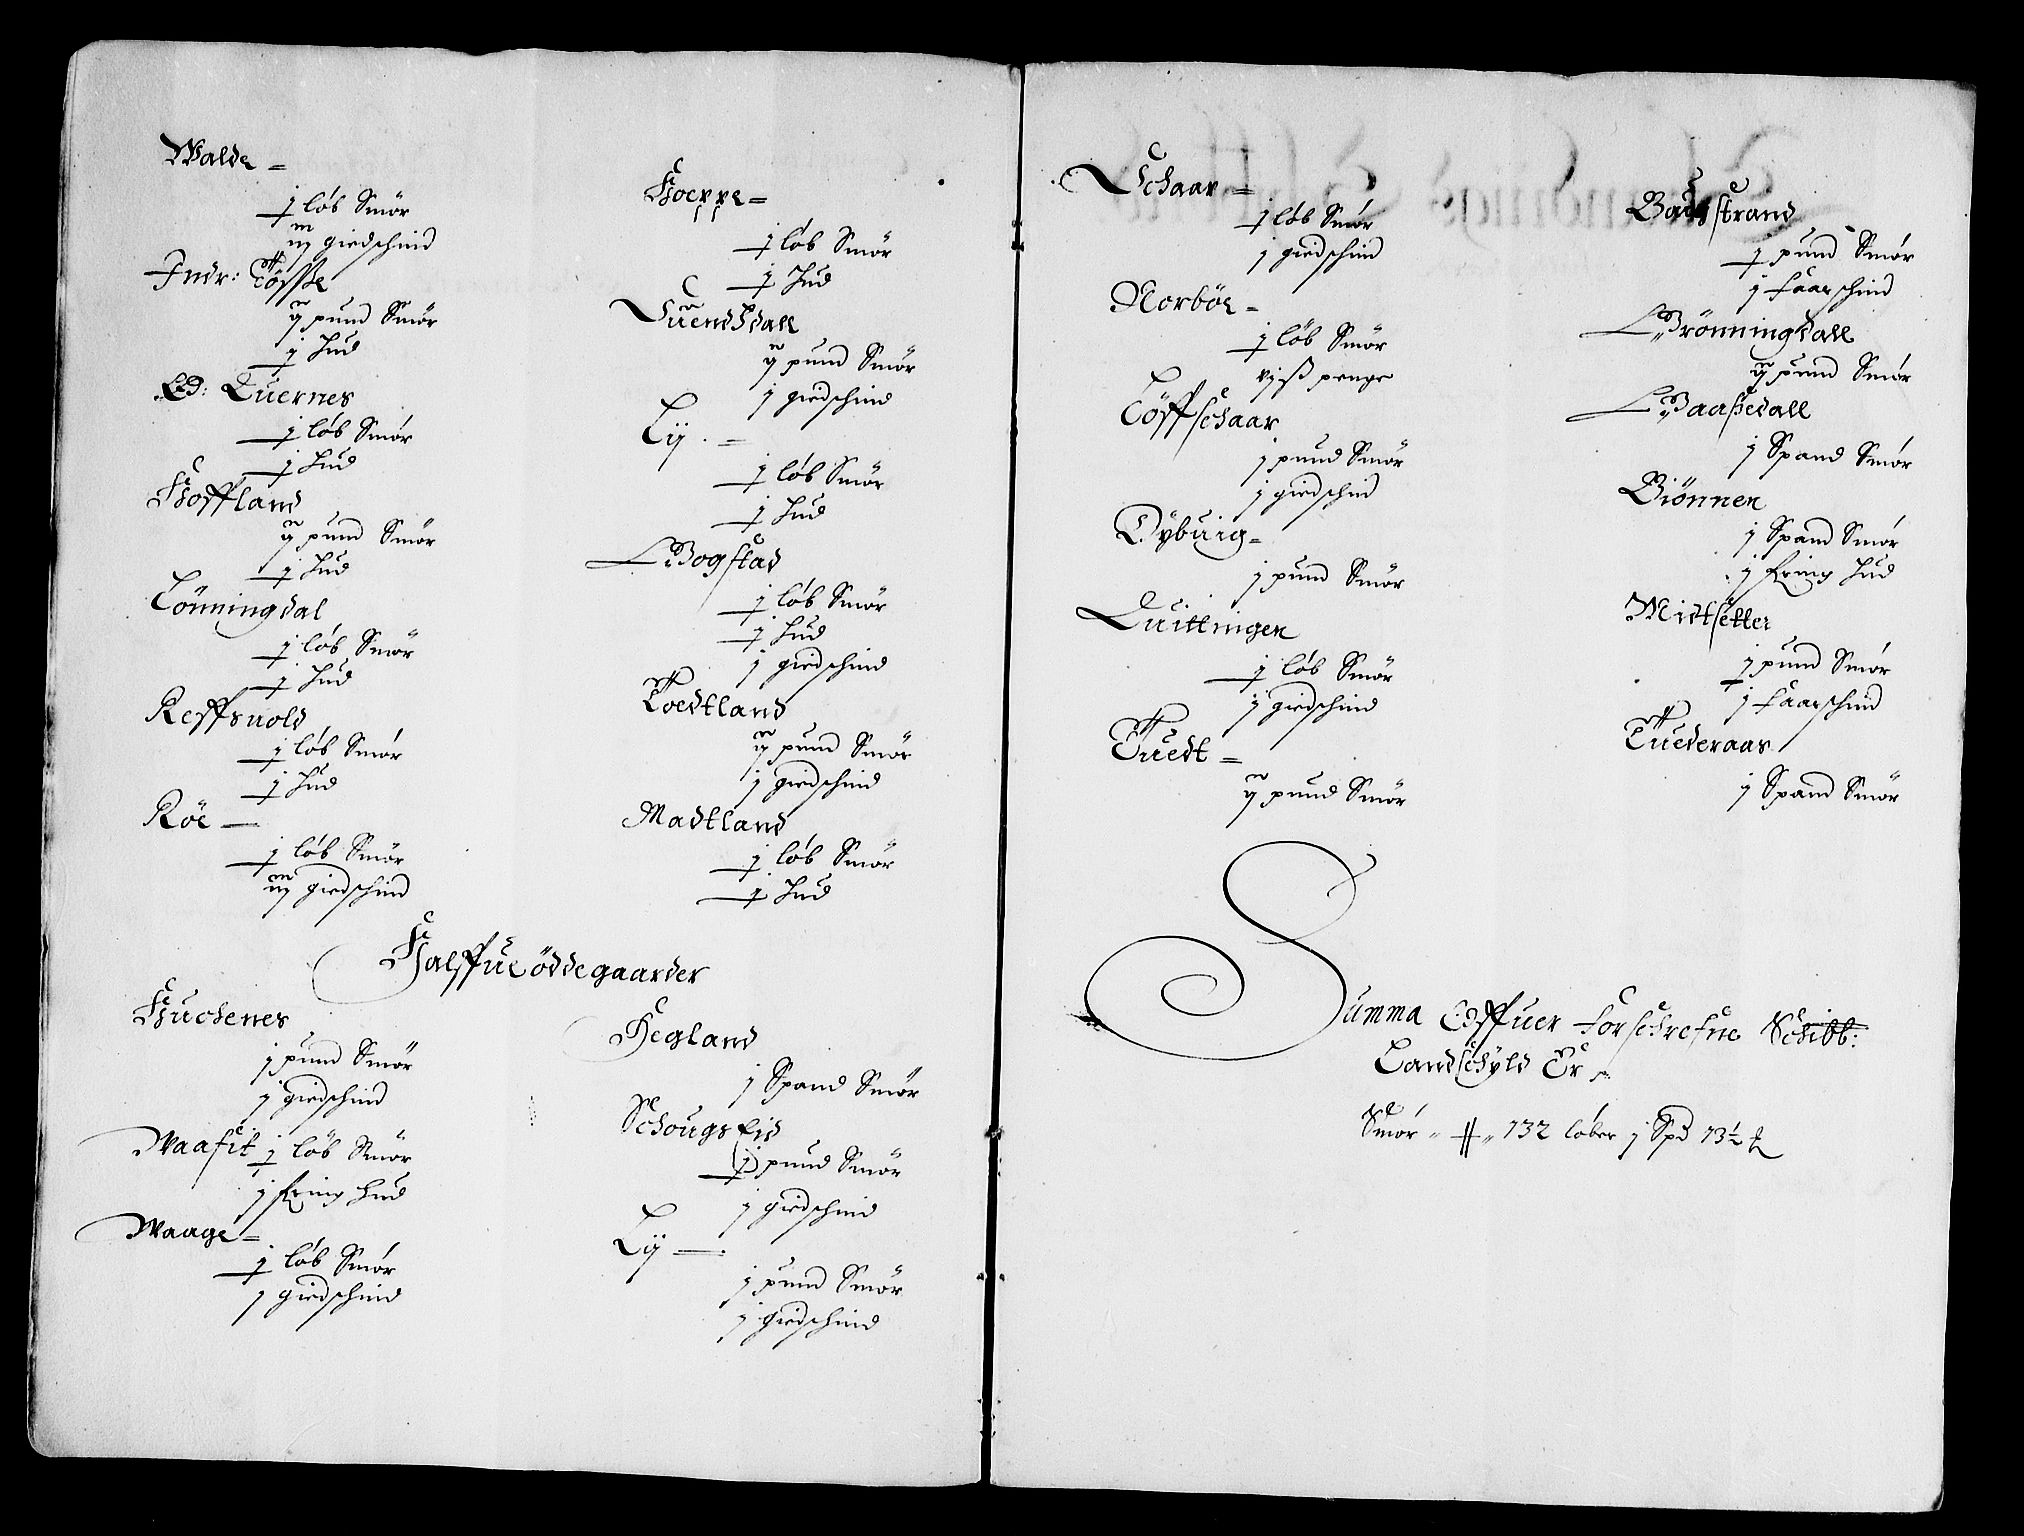 Walde =
j løb Smör
iij giedschind
Indr: Tösse
ij pund Smör
j Hud
Ed: Quernes
j løb Smör
j Hud
Hoffland
ij pund Smör
j Hud
Lönningdal
j løb Smör
j Hud
Reffsuold
j løb Smör
j Hud
Röe —
j løb Smör
iij giedschind
Hoeppe =
j løb Smör
j Hud
Suendsdall
ij pund Smör
j giedschind
Lij . =
j løb Smör
j Hud
Bogstad
j løb Smör
j Hud
j giedschind
Toedtland
ij pund Smör
j giedschind
Madtland
j løb Smör
j Hud
Halffue öddegaarder
Huchenes
j pund Smör
j giedschind
Waasit j løb Smör
j fring Hud
Waage =
j løb Smör
j giedschind
Hegland
j Spand Smör
Schougs Eid
(j) pund Smör
j giedschind
Lij =
j pund Smör
j giedschind
Schaar =
j løb Smör
j giedschind
Norböe =
j løb Smör
vj ß penge
Löffschaar
j pund Smör
j giedschind
Dybuig =
j pund Smör
Quittingen
j løb Smör
j giedschind
Tuedt =
ij pund Smör
Bachstrand
j pund Smör
j faarschind
Brönningdall
ij pund Smör
Baassedall
j Spand Smör
Biönnen
j Spand Smör
j fring Hud
Midtsetter
j pund Smör
j faarschind
Tuederaas
j Spand Smör
Summa Offuer forschrefne Schibb:
Landschyld Er
Smör 132 løber j Spd 13½